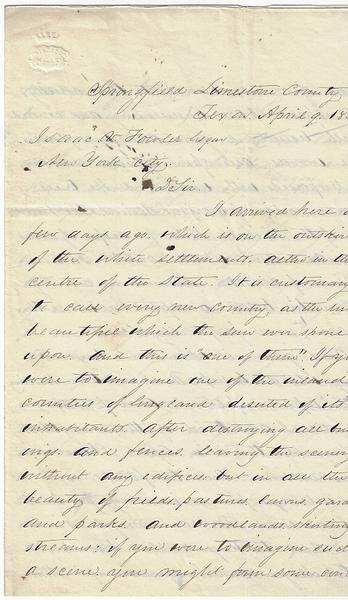 Springfield Limestone County
Texas April 9. 18
Isaac Fowler Esqur
New York City.
D Sir
I arrived here a
few days ago. which is on the outskirts
of the white settlements. in the
centre of the State. It is customary
to call every new country as the
beautiful which the sun ever shone
upon. and this is "one of them". If you
were to imagine one of the inland
counties of England deserted of its
inhabitants. after destroying all buil
ings and fences. leaving the scenery
without any edifices. but in all the
beauty of fields, pastures, lawns, gard
and parks, and woodlands skirting
streams; if you were to imagine such
a scene. you might form some con